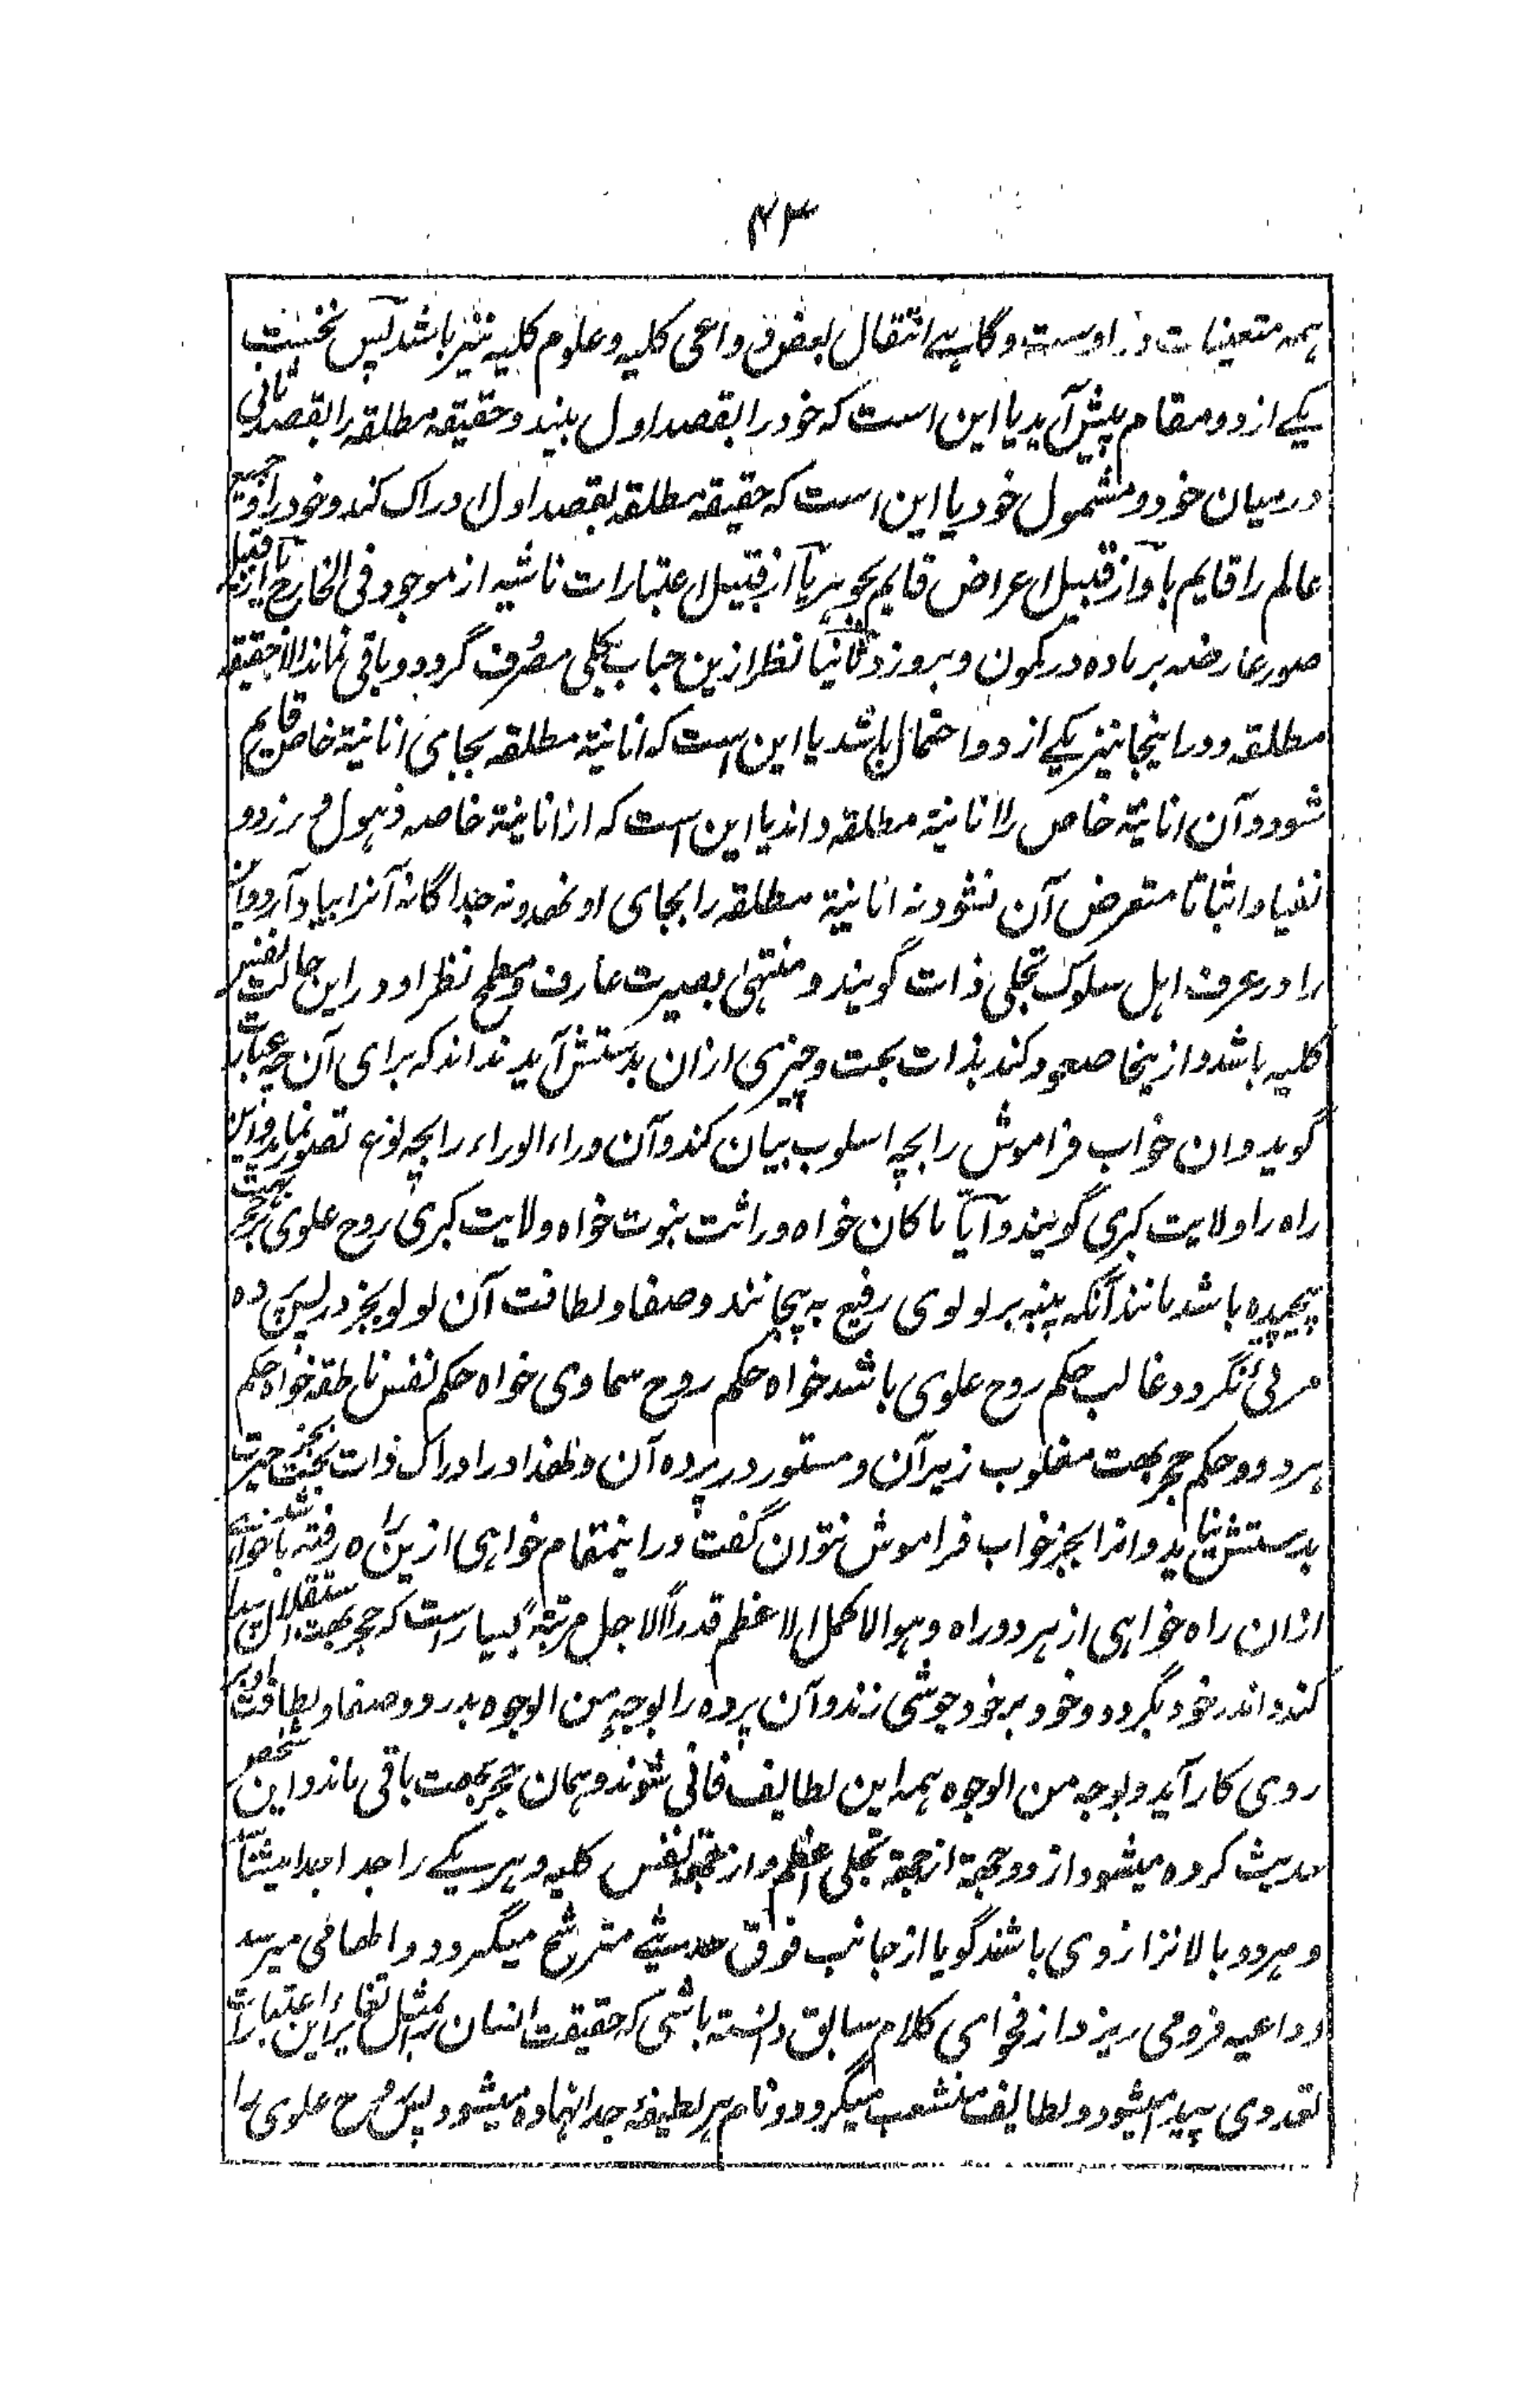 ۴۳
همه متعینات در اوست و گاهے انتقال بعضی دواعی کلیه و علوم کلیه نیز باشد پس نخست
یکے از دو مقام پیش آید یا این است که خود را بقصد اول بیند و حقیقه مطلقه را بقصد ثانی
در میان خود و مشمول خود یا این است که حقیقه مطلقه بقصد اول ادراک کند و خود را و جمیع
عالم را قایم باو از قبیل اعراض قایم بجوهر یا از قبیل اعتبارات ناشیه از موجود فی الخارج یا از قبیل
صور عارضه بر ماده در کون و بروز و ثانیا نظر ازین حباب بکلی مصرف گردد و باقی نماند الا حقیقه
مطلقه و در اینجا نیز یکے از دو احتمال باشد یا این است که انانیة مطلقه بجای انانیة خاص قایم
شود و آن انانیة خاص را انانیة مطلقه داند یا این است که از انانیة خاصه ذهول ورزد و
نفیا و اثباتا متعرض آن نشود نه انانیة مطلقه را بجای او نهد و نه جداگانه آنرا بیاد آرد و این
را در عرف اهل سلوک تجلی ذات گویند و منتهی بصیرت عارف و مطمح نظر او در این حالت نفس
کلیه باشد و ازینجا صعود کند بذات بحت و چیزی ازان بدستش آید نداند که برای آن چه عبارت
گوید و ان خواب فراموش را بچه اسلوب بیان کند و آن وراء الوراء را بچه نوع تصور نماید و این
راه را ولایت کبری گویند و آیّا ما کان خواه وراثت نبوت خواه ولایت کبری روح علوی بر حجر بهت
پیچیده باشد مانند آنکه پنبه بر لولوی رفیع به پیچانند و صفا و لطافت آن لولو بجز در پس پرده
مرئی نگردد غالب حکم روح علوی باشد خواه حکم روح سماوی خواه حکم نفس ناطقه خواه حکم
هر دو و حکم حجر بهت مغلوب زیر آن و مستور در پرده آن و لهذا در ادراک ذات بحت بجز حیرت
بدستش نیاید و انرا بجز خواب فراموش نتوان گفت و در اینمقام خواهی ازین راه رفته باشد خواهی
ازان راه خواهی از هر دو راه و هو الاکمل الاعظم قدراً الاجل مرتبةً بسیار است که حجر بهت استقلال پیدا
کند و اندر خود بگردد و خود بر خود جوشی زند و آن پرده را بوجه من الوجوه بدرد و صفا و لطافت او بر
روی کار آید و بوجه من الوجوه همه این لطایف فانی شوند و همان حجر بهت باقی ماند و این شخص
حدیث کرده میشود از دو جهة از جهة تجلی اعظم و از جهة نفس کلیه و هر یکے را جدا جدا میشناسد
و هردو بالاتر از وی باشند گویا از جانب فوق حدیثے مترشح میگردد و الهامی میرسد
و داعیه فرو می ریزد و از فحوای کلام سابق دانسته باشی که حقیقت انسان بمثل تغایر این اعتبارات را
تعددی پیدا میشود و لطایف منشعب میگردد و نام هر لطیفۀ جدا نهاده میشود پس روح علوی را